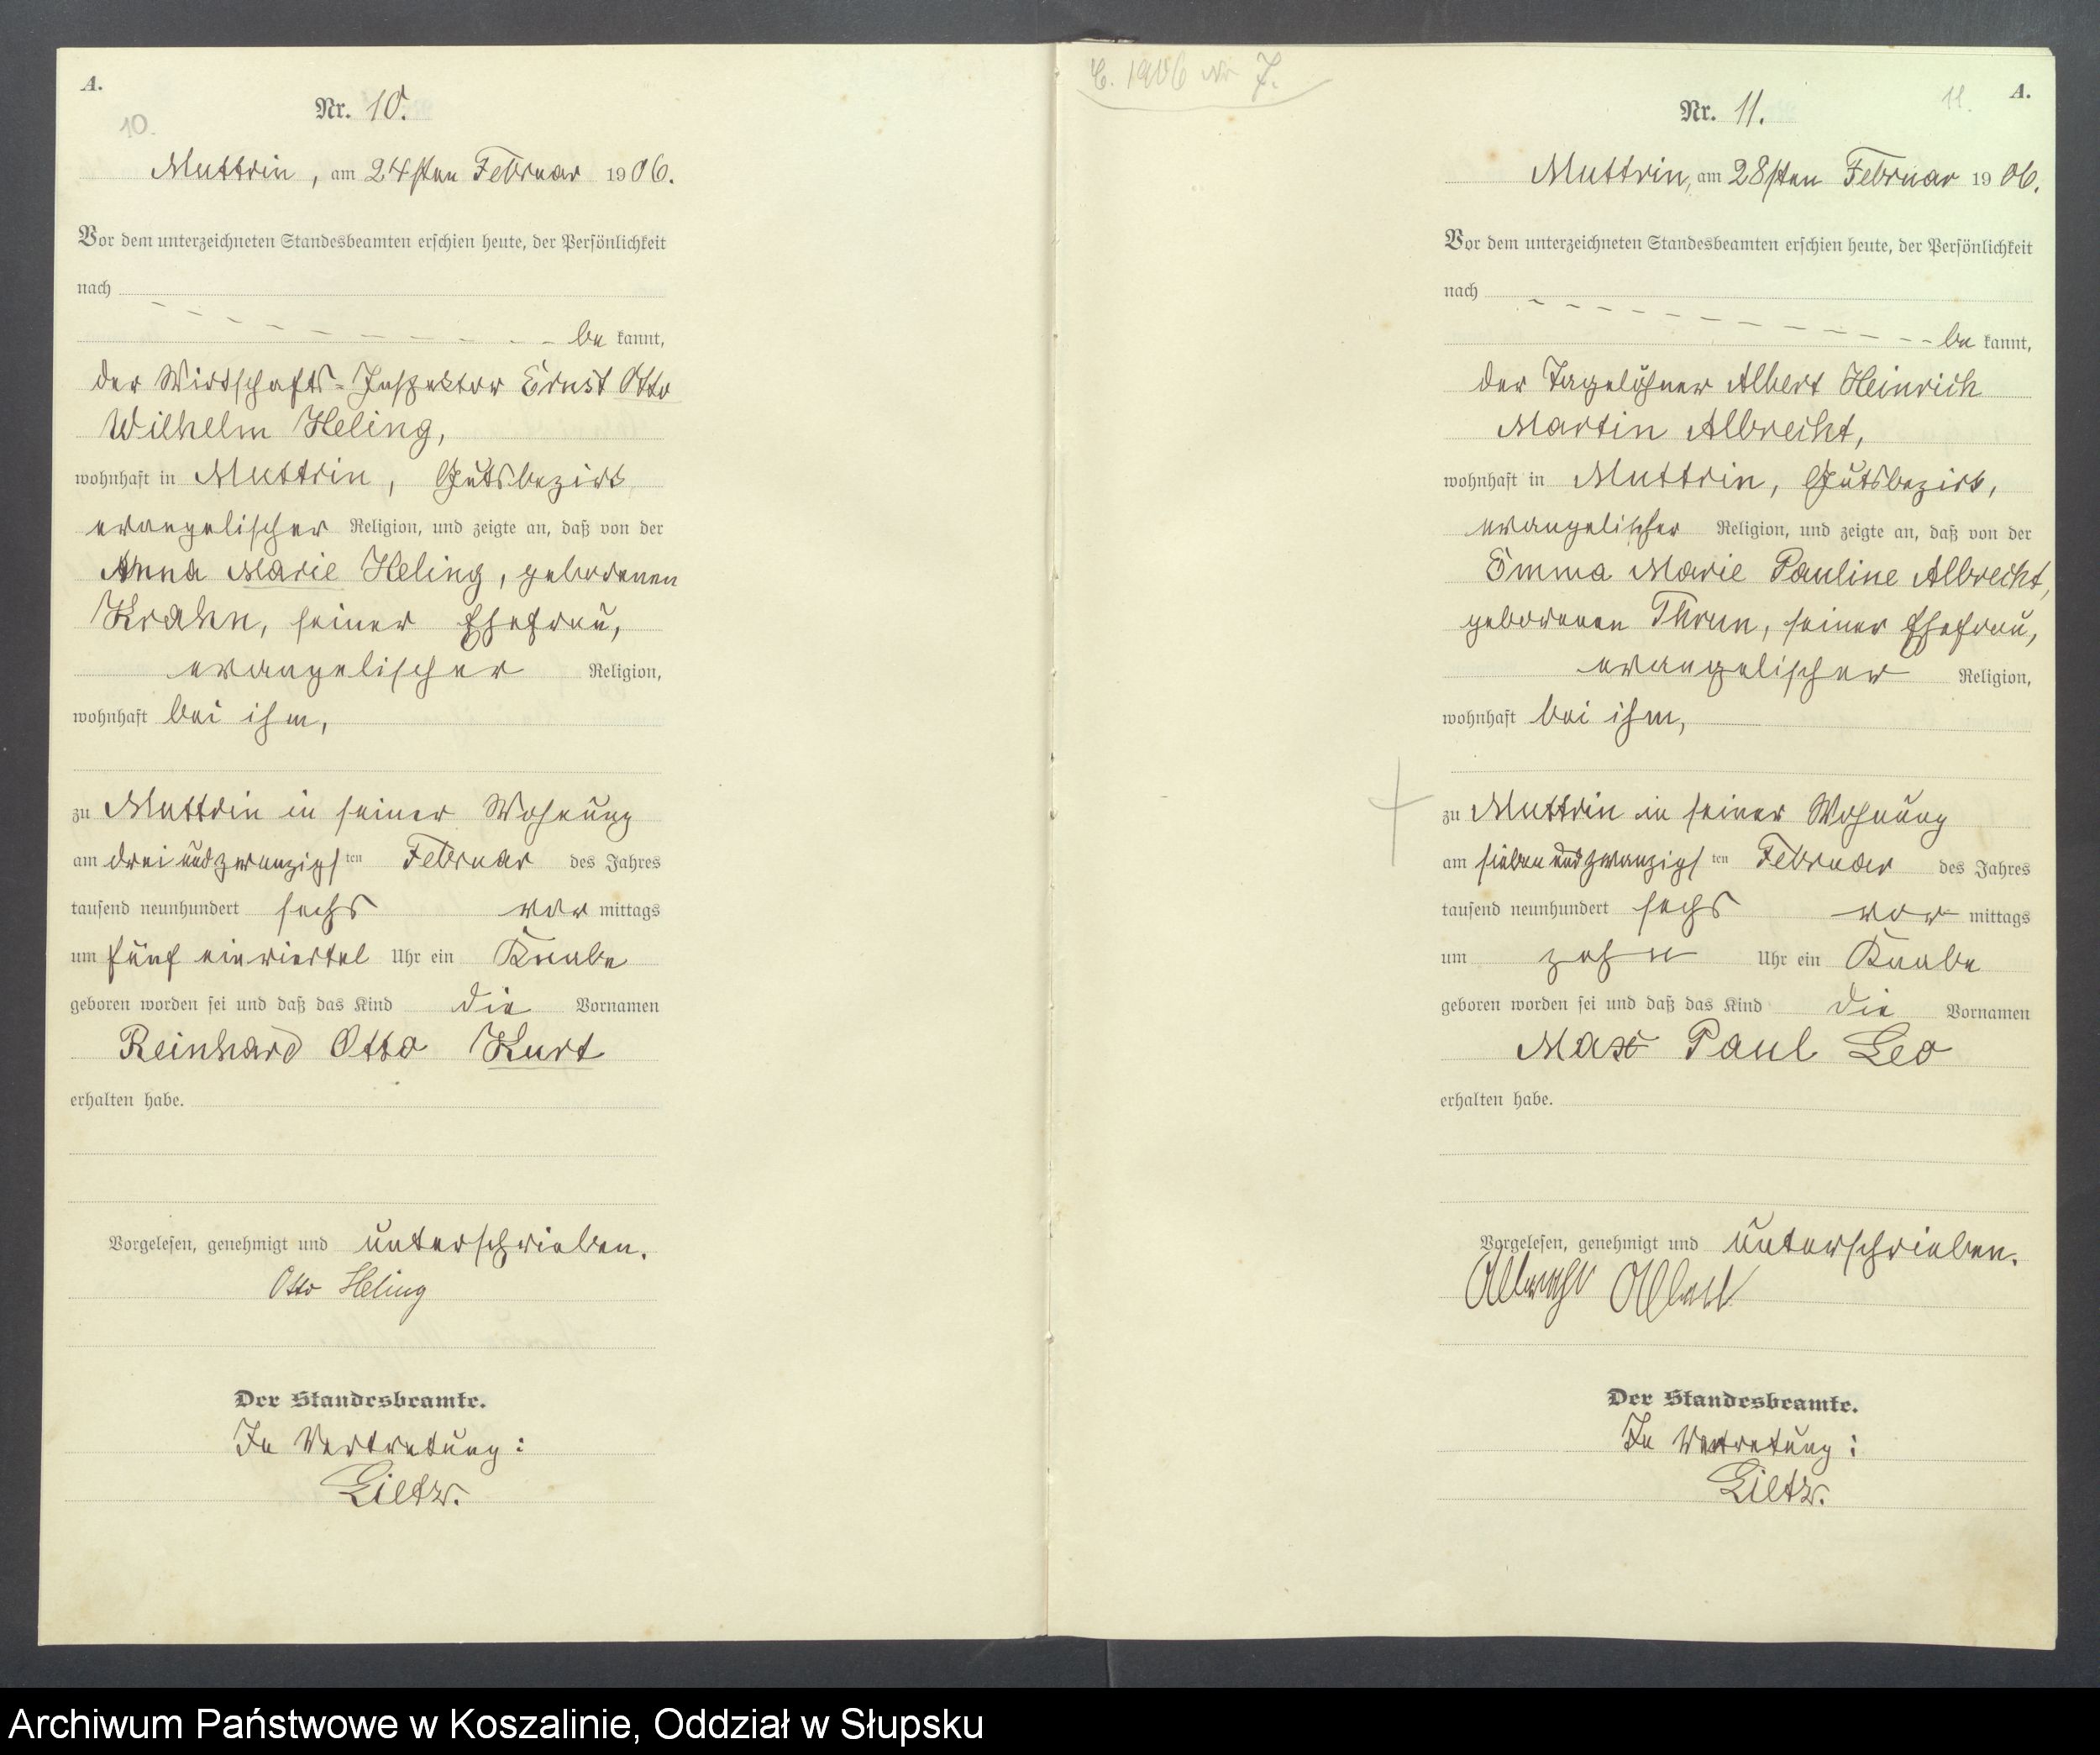 A.
10.
Nr. 10.
Muttrin, am 24sten Februar 1906.
Vor dem unterzeichneten Standesbeamten erschien heute, der Persönlichkeit
nach
be kannt,
der Wirtschafts-Inspektor Ernst Otto
Wilhelm Heling,
wohnhaft in Muttrin, Gutsbezirk
evangelischer Religion, und zeigte an, daß von der
Anna Marie Heling, geborenen
Krahn, seiner Ehefrau,
evangelischer Religion,
wohnhaft bei ihm,
zu Muttrin in seiner Wohnung
am dreiundzwanzigsten Februar des Jahres
tausend neunhundert sechs vor mittags
um fünf einviertel Uhr ein Knabe
geboren worden sei und daß das Kind die Vornamen
Reinhard Otto Kurt
erhalten habe.
Vorgelesen, genehmigt und unterschrieben.
Otto Heling
Der Standesbeamte.
In Vertretung:
Lietz.
C. 1906 Nr 7.
11.
A.
Nr. 11.
Muttrin, am 28sten Februar 1906.
Vor dem unterzeichneten Standesbeamten erschien heute, der Persönlichkeit
nach
be kannt,
der Tagelöhner Albert Heinrich
Martin Albrecht,
wohnhaft in Muttrin, Gutsbezirk,
evangelischer Religion, und zeigte an, daß von der
Emma Marie Pauline Albrecht,
geborenen Thrun, seiner Ehefrau,
evangelischer Religion,
wohnhaft bei ihm,
zu Muttrin in seiner Wohnung
am siebenundzwanzigsten Februar des Jahres
tausend neunhundert sechs vor mittags
um zehn Uhr ein Knabe
geboren worden sei und daß das Kind die Vornamen
Max Paul Leo
erhalten habe.
Vorgelesen, genehmigt und unterschrieben.
Albrecht Albert
Der Standesbeamte.
In Vertretung:
Lietz.
Archiwum Państwowe w Koszalinie, Oddział w Słupsku